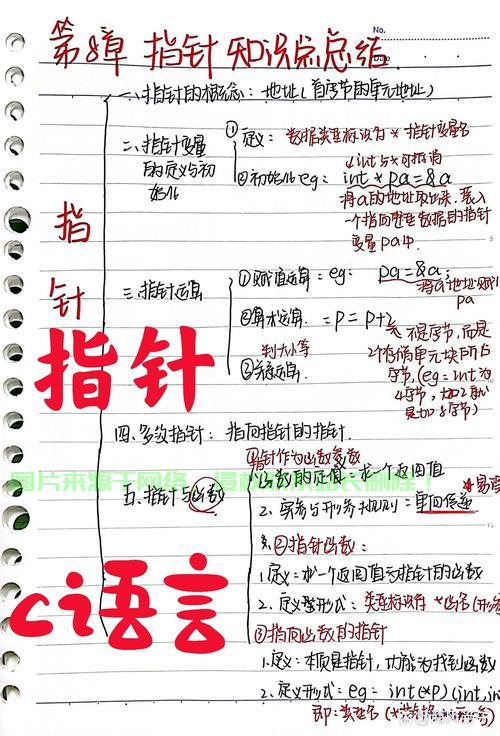 第8章 指针知识点总结.
No.
Date
一、指针的概念: 地址(首字节的单元地址)
二、指针变量的定义与初始化
① 定义: 数据类型标识符 * 指针变量名
int与*可抵消
②初始化 eg: int * pa = &a
将a的地址取出来, 装入
一个指向整型数据的指针
变量pa中.
指针
三、指针运算
①赋值运算: eg: pa = &a;
将a地址赋给
pa
②算术运算
不是字节, 而是
2个存储单元块所占
字节, (eg: int为
4字节,
判大小等
③关系运算
指针
四、多级指针: 指向指针的指针.
①指针作为函数参数
图片来源于网络,侵权联系站长删除!
五、指针与函数
1.函数的定值: 求一个返回值
2、实参与形参规则: 单向传递
易考
②指针函数:
1.定义: 求一个返回值为指针的函数
2、定义型形式: 类型标识符 *函数名(形参
ci语言
③指向函数的指针
1.定义: 本质是指针, 功能为找到函数
2、定义形式: eg: int(*p)(int,in
即: 类型名 (*指针名)